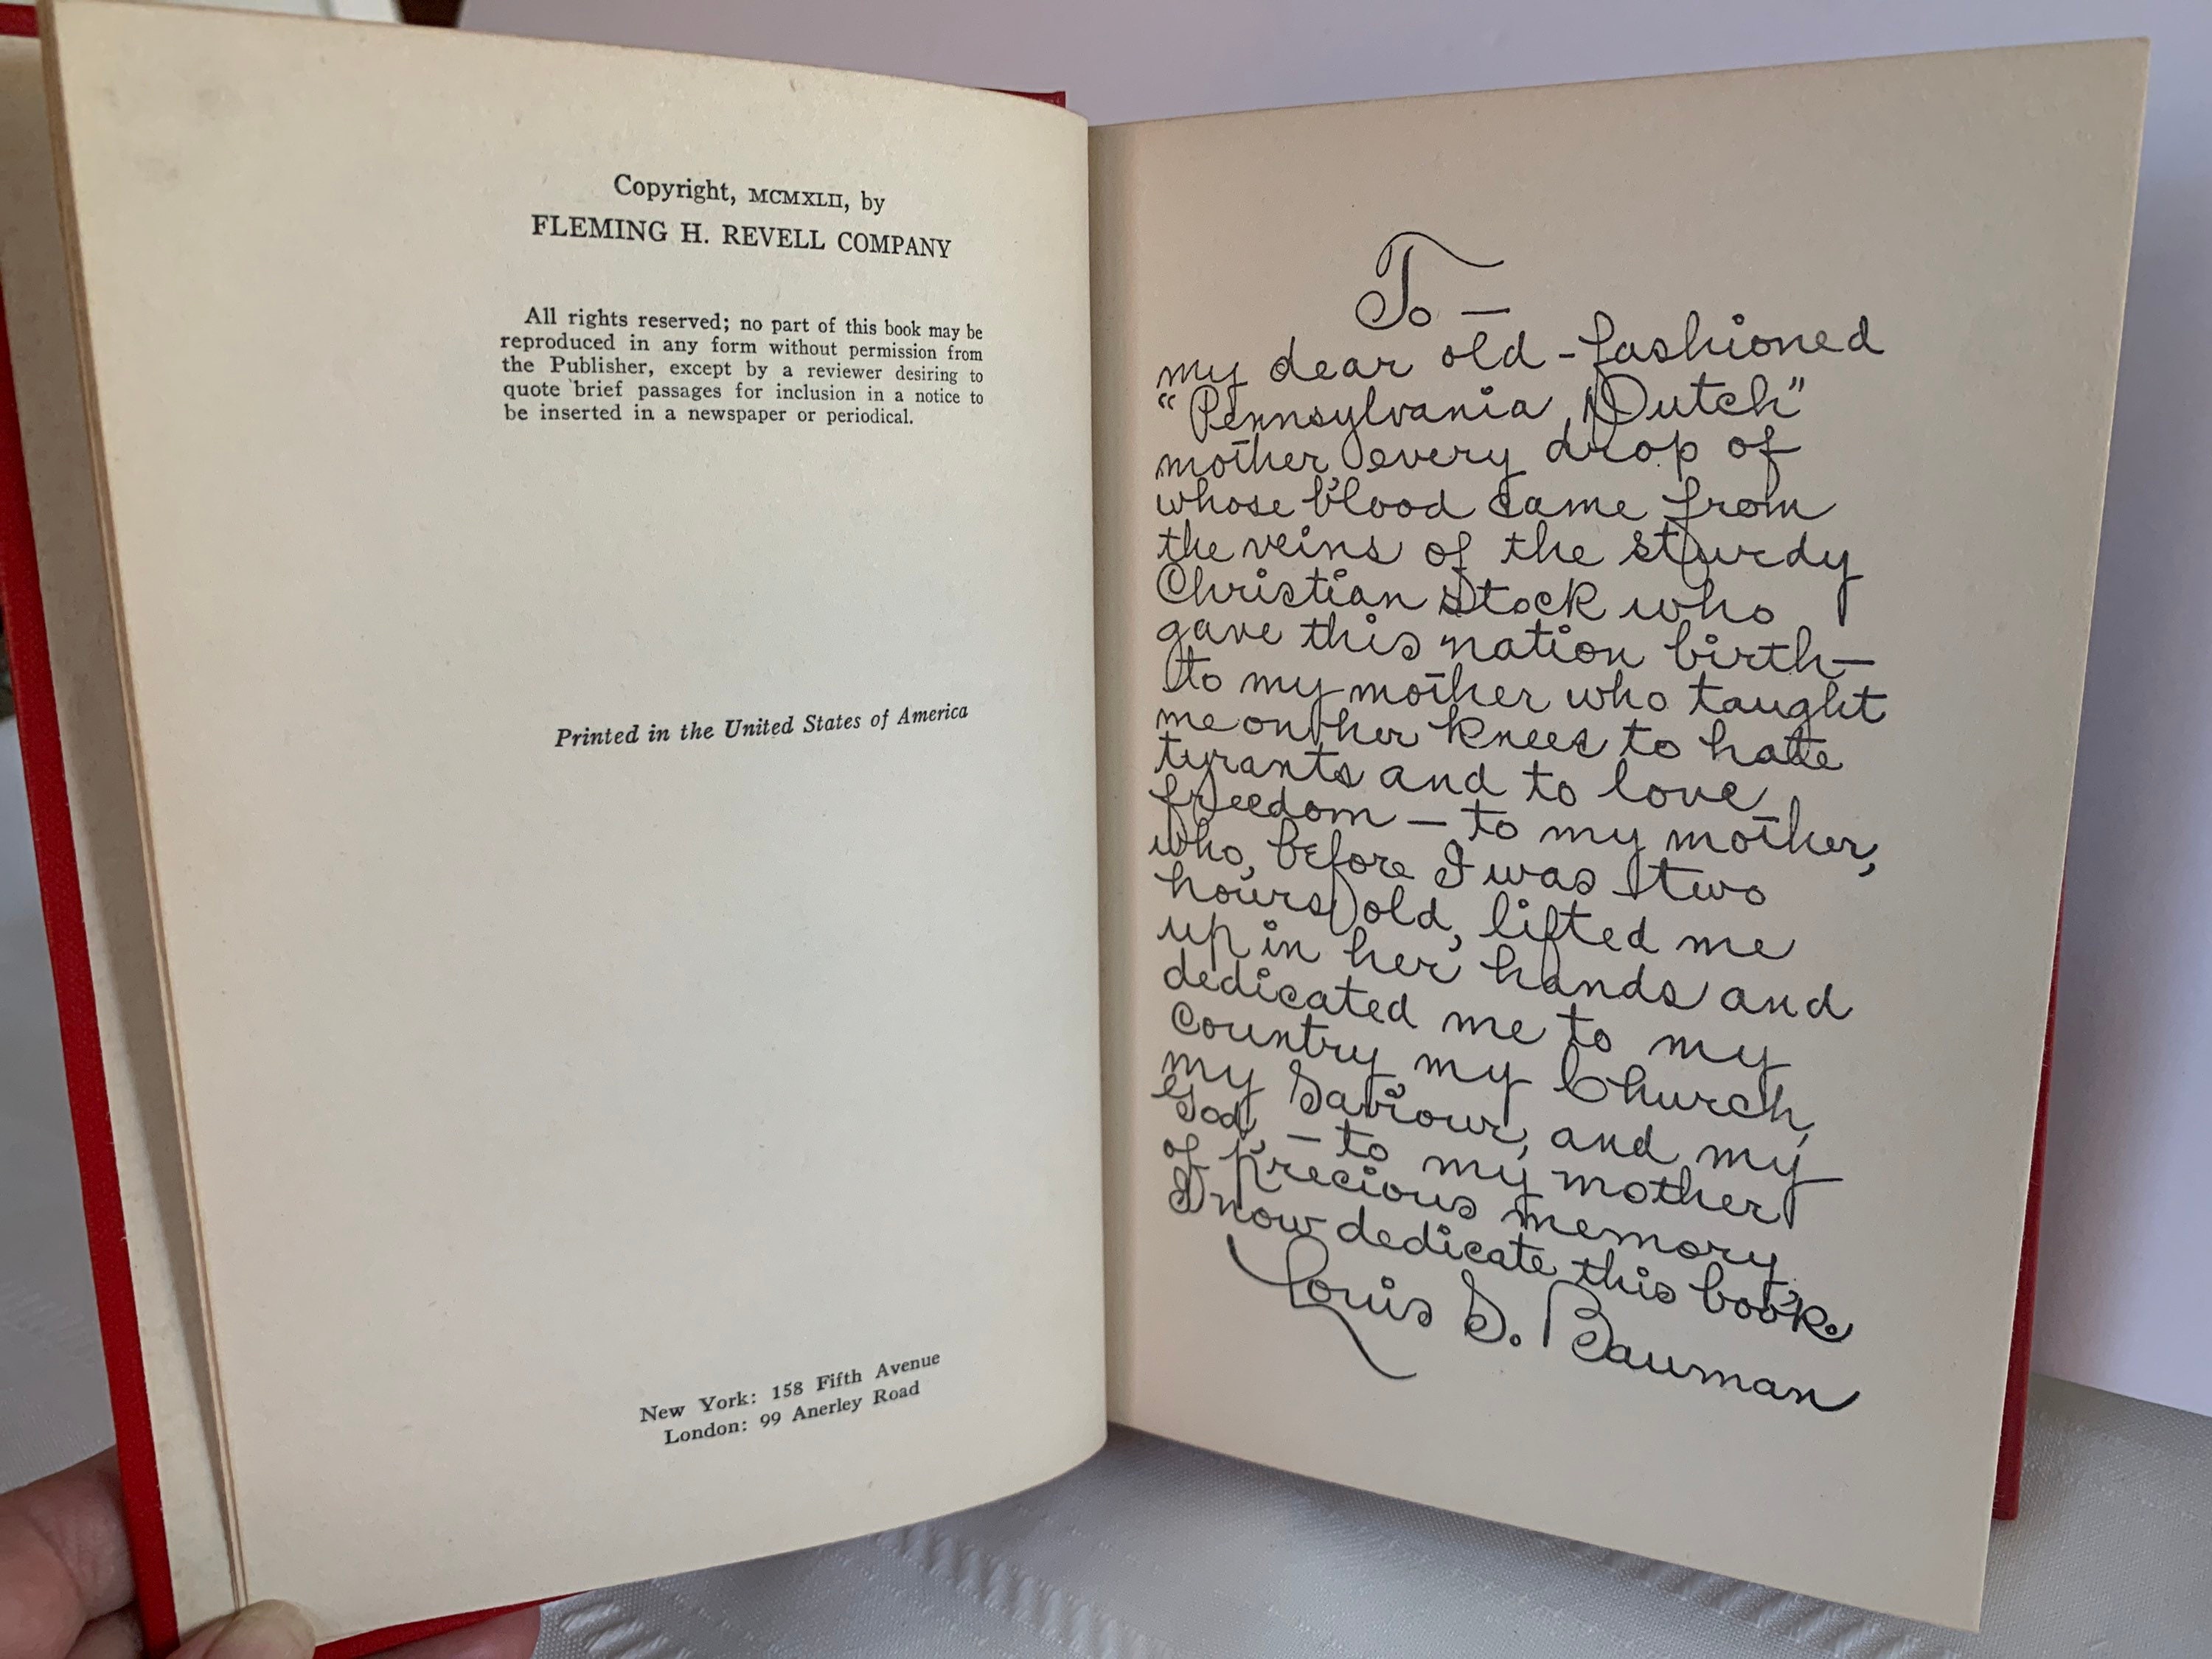 Copyright, MCMXLII, by
FLEMING H. REVELL COMPANY
All rights reserved; no part of this book may be
reproduced in any form without permission from
the Publisher, except by a reviewer desiring to
quote brief passages for inclusion in a notice to
be inserted in a newspaper or periodical.
Printed in the United States of America
New York: 158 Fifth Avenue
London: 99 Anerley Road
To —
my dear old-fashioned
"Pennsylvania Dutch"
mother, every drop of
whose blood came from
the veins of the sturdy
Christian stock who
gave this nation birth—
to my mother who taught
me on her knees to hate
tyrants and to love
freedom — to my mother,
who, before I was two
hours old, lifted me
up in her hands and
dedicated me to my
country, my Church,
my Saviour, and my
God, — to my mother
of precious memory,
I now dedicate this book.
Louis S. Bauman